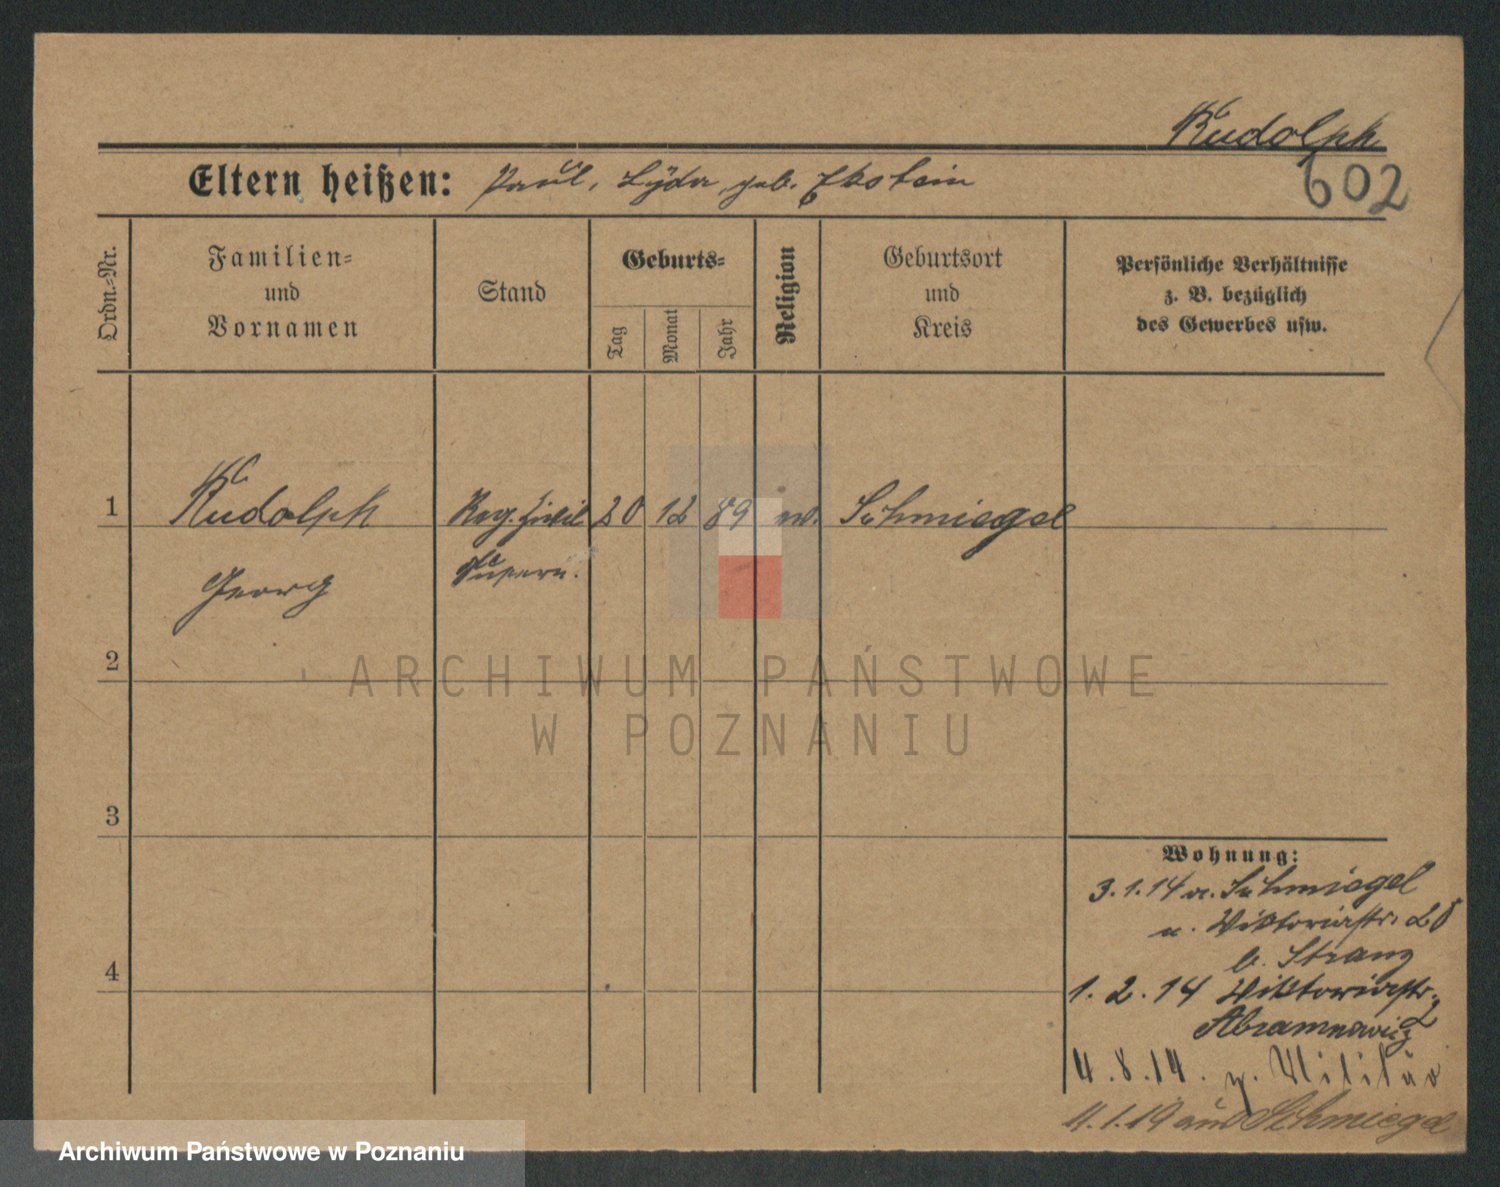 Rudolph
602
Eltern heißen: Paul, Lyda, geb. Ekstein
Ordn.-Nr.
Familien-
und
Vornamen
Stand
Geburts-
Tag
Monat
Jahr
Religion
Geburtsort
und
Kreis
Persönliche Verhältnisse
z. B. bezüglich
des Gewerbes usw.
1
Rudolph
Georg
Reg. Zivil
Supern.
20
12
89
ev.
Schmiegel
2
3
4
Wohnung:
3.1.14 v. Schmiegel
n. Viktoriastr. 28
b. Stranz
1.2.14 Viktoriastr. 2
Abramowicz
4.8.14. z. Militär
4.1.19 aus Schmiegel
ARCHIWUM PAŃSTWOWE
W POZNANIU
Archiwum Państwowe w Poznaniu